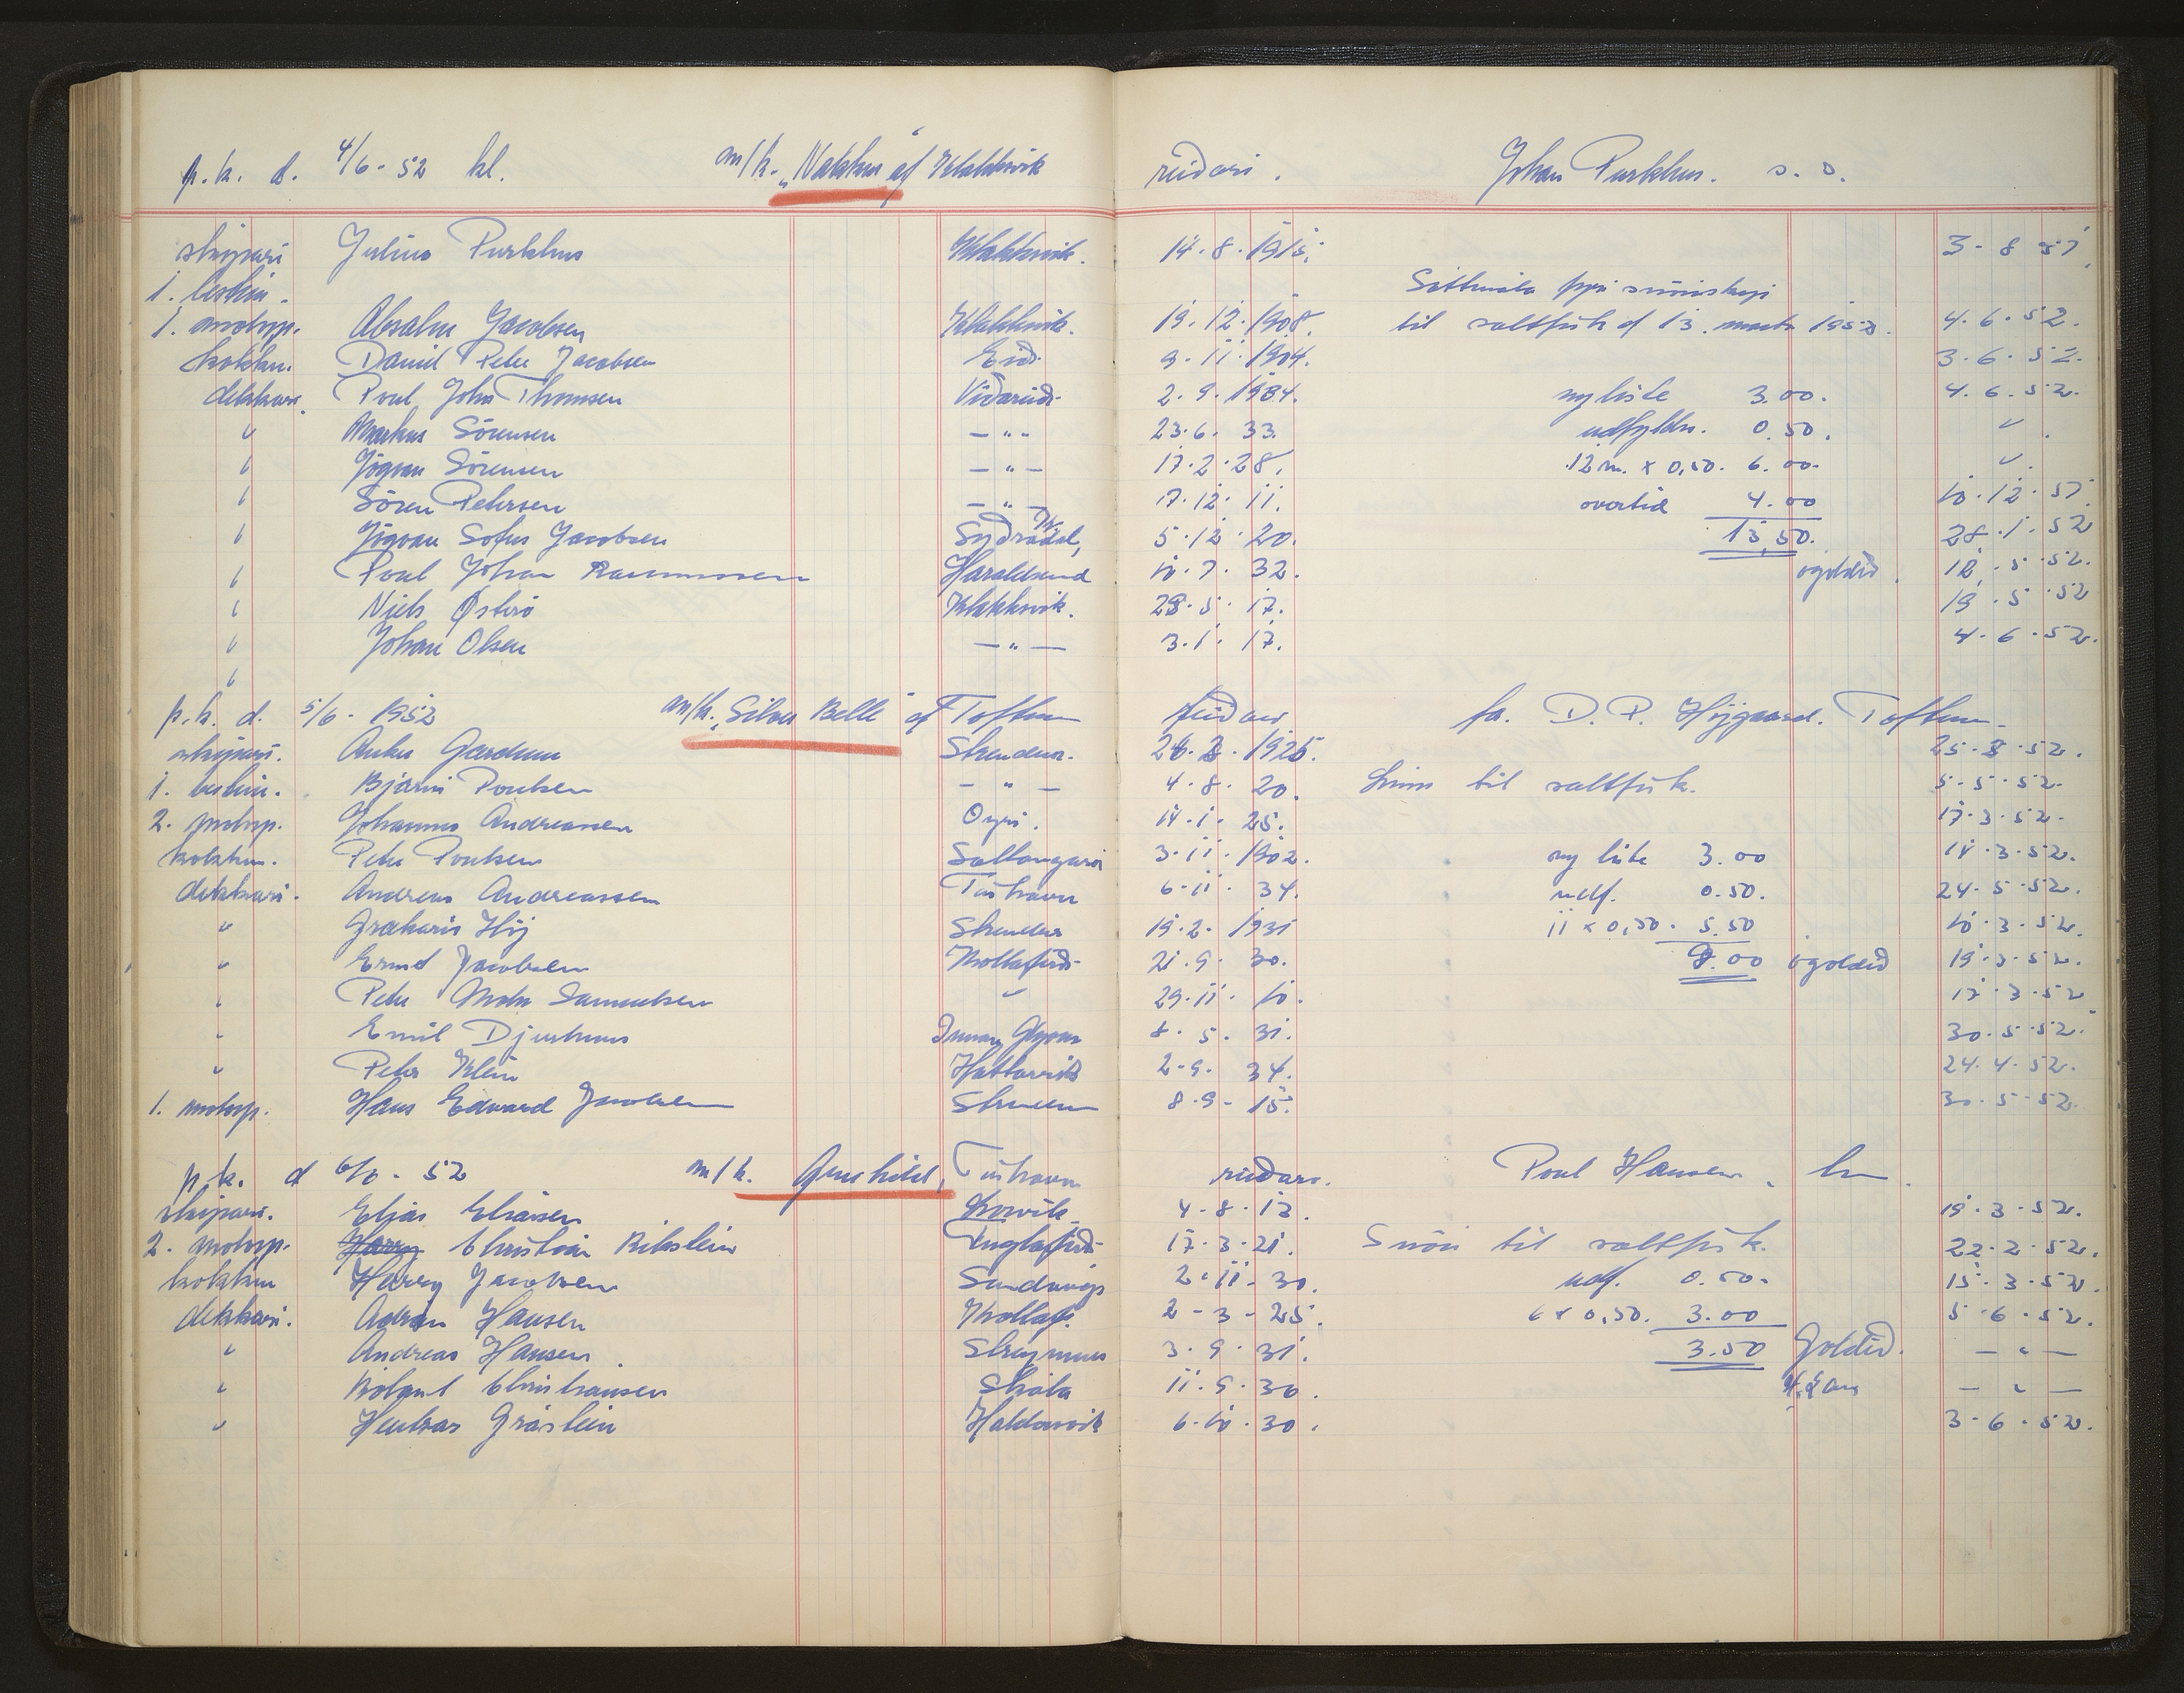 p.k. d. 4/6-52 kl. m/k. "Nakkur" af Klakksvik reiðari. Johan Purkhus. s. s.
skipari Julius Purkhus Klakksvik. 14.8.1915. 3-8 51.
1. bestim.
til saltfisk d 13. marts 1952.
1. motorp. Absalon Jacobsen Klakksvik. 19.12.1908. 4.6.52.
kokkur. Daniel Peter Jacobsen Eid. 9.11.1904. 3.6.52.
dekkari. Poul John Thomsen Viðareiði. 2.9.1934. ny liste 3.00. 4.6.52.
" Markus Sörensen -"- 23.6. 33. udfyldn. 0.50. "
" Jógvan Sörensen -"- 17.2.28. 12 m. x 0,50. 6.00. "
" Sören Petersen -"- 17.12.11. overtid 4.00 10.12.51.
" Jógvan Sofus Jacobsen Syðradal, 5.12.20. 13,50. 28.1.52
" Poul Johan Rasmussen Haraldsund 10.7.32. ogoldið. 12.5.52.
" Niels Østerö Klakksvik. 28.5.17. 19.5.52
" Johan Olsen -"- 3.1.17. 4.6.52.
"
p.k. d. 5/6-1952 m/k. "Silver Belle" af Toftum reiðari fa. D. P. Højgaard. Toftum.
skipari. Strendur. 1925. 52.
1. bestim. Bjarni Poulsen -"- 4.8.20. til saltfisk. 5.5.52.
2. motorp. Johannus Andreassen Oyri. 14.1.25. 17.3.52.
kokkur. Peter Poulsen Saltangará 3.11.1902. ny liste 3.00 11.3.52.
dekkari. Andreas Andreassen Tórshavn 6.11.34. udf. 0.50. 24.5.52.
" Zrakaris Høj Strendur 19.2.1931 11 x 0,50. 5.50 10.3.52.
" Ernst Jacobsen Kollafirði 21.9.30. 9.00 ogoldið 19.3.52.
" Peter Samuelsen " 29.11.10. 17.3.52
" Emil Djurhuus 8.5.31. 30.5.52.
" Peter Klein Hattarvík 2-9.34. 24.4.52.
1. motorp. Hans Edvard Jacobsen Strendur 8.9-15. 30.5.52.
p.k. d 6/6-52 m/k. Gunhild, Tórshavn reiðari. Poul Hansen,
skipari. Elias Eliasen 4-8-12. 19.3.52.
2. motorp. Christian Ribstein Fuglafirði 17.3.21. Snöri til saltfisk. 22.2.52.
kokkur Harry Jacobsen Sandvági 2.11.30. udf. 0.50. 15.3.52.
dekkari. Adrian Hansen Kollaf. 2-3-25. 6 x 0,50. 3.00 5.6.52.
" Andreas Hansen. Streymnes 3.9.31. 3.50 Goldið. -"-
" Christiansen Skála 11.9.30. -"-
" Gråstein Haldarsvik 6.10.30. 3-6.52.